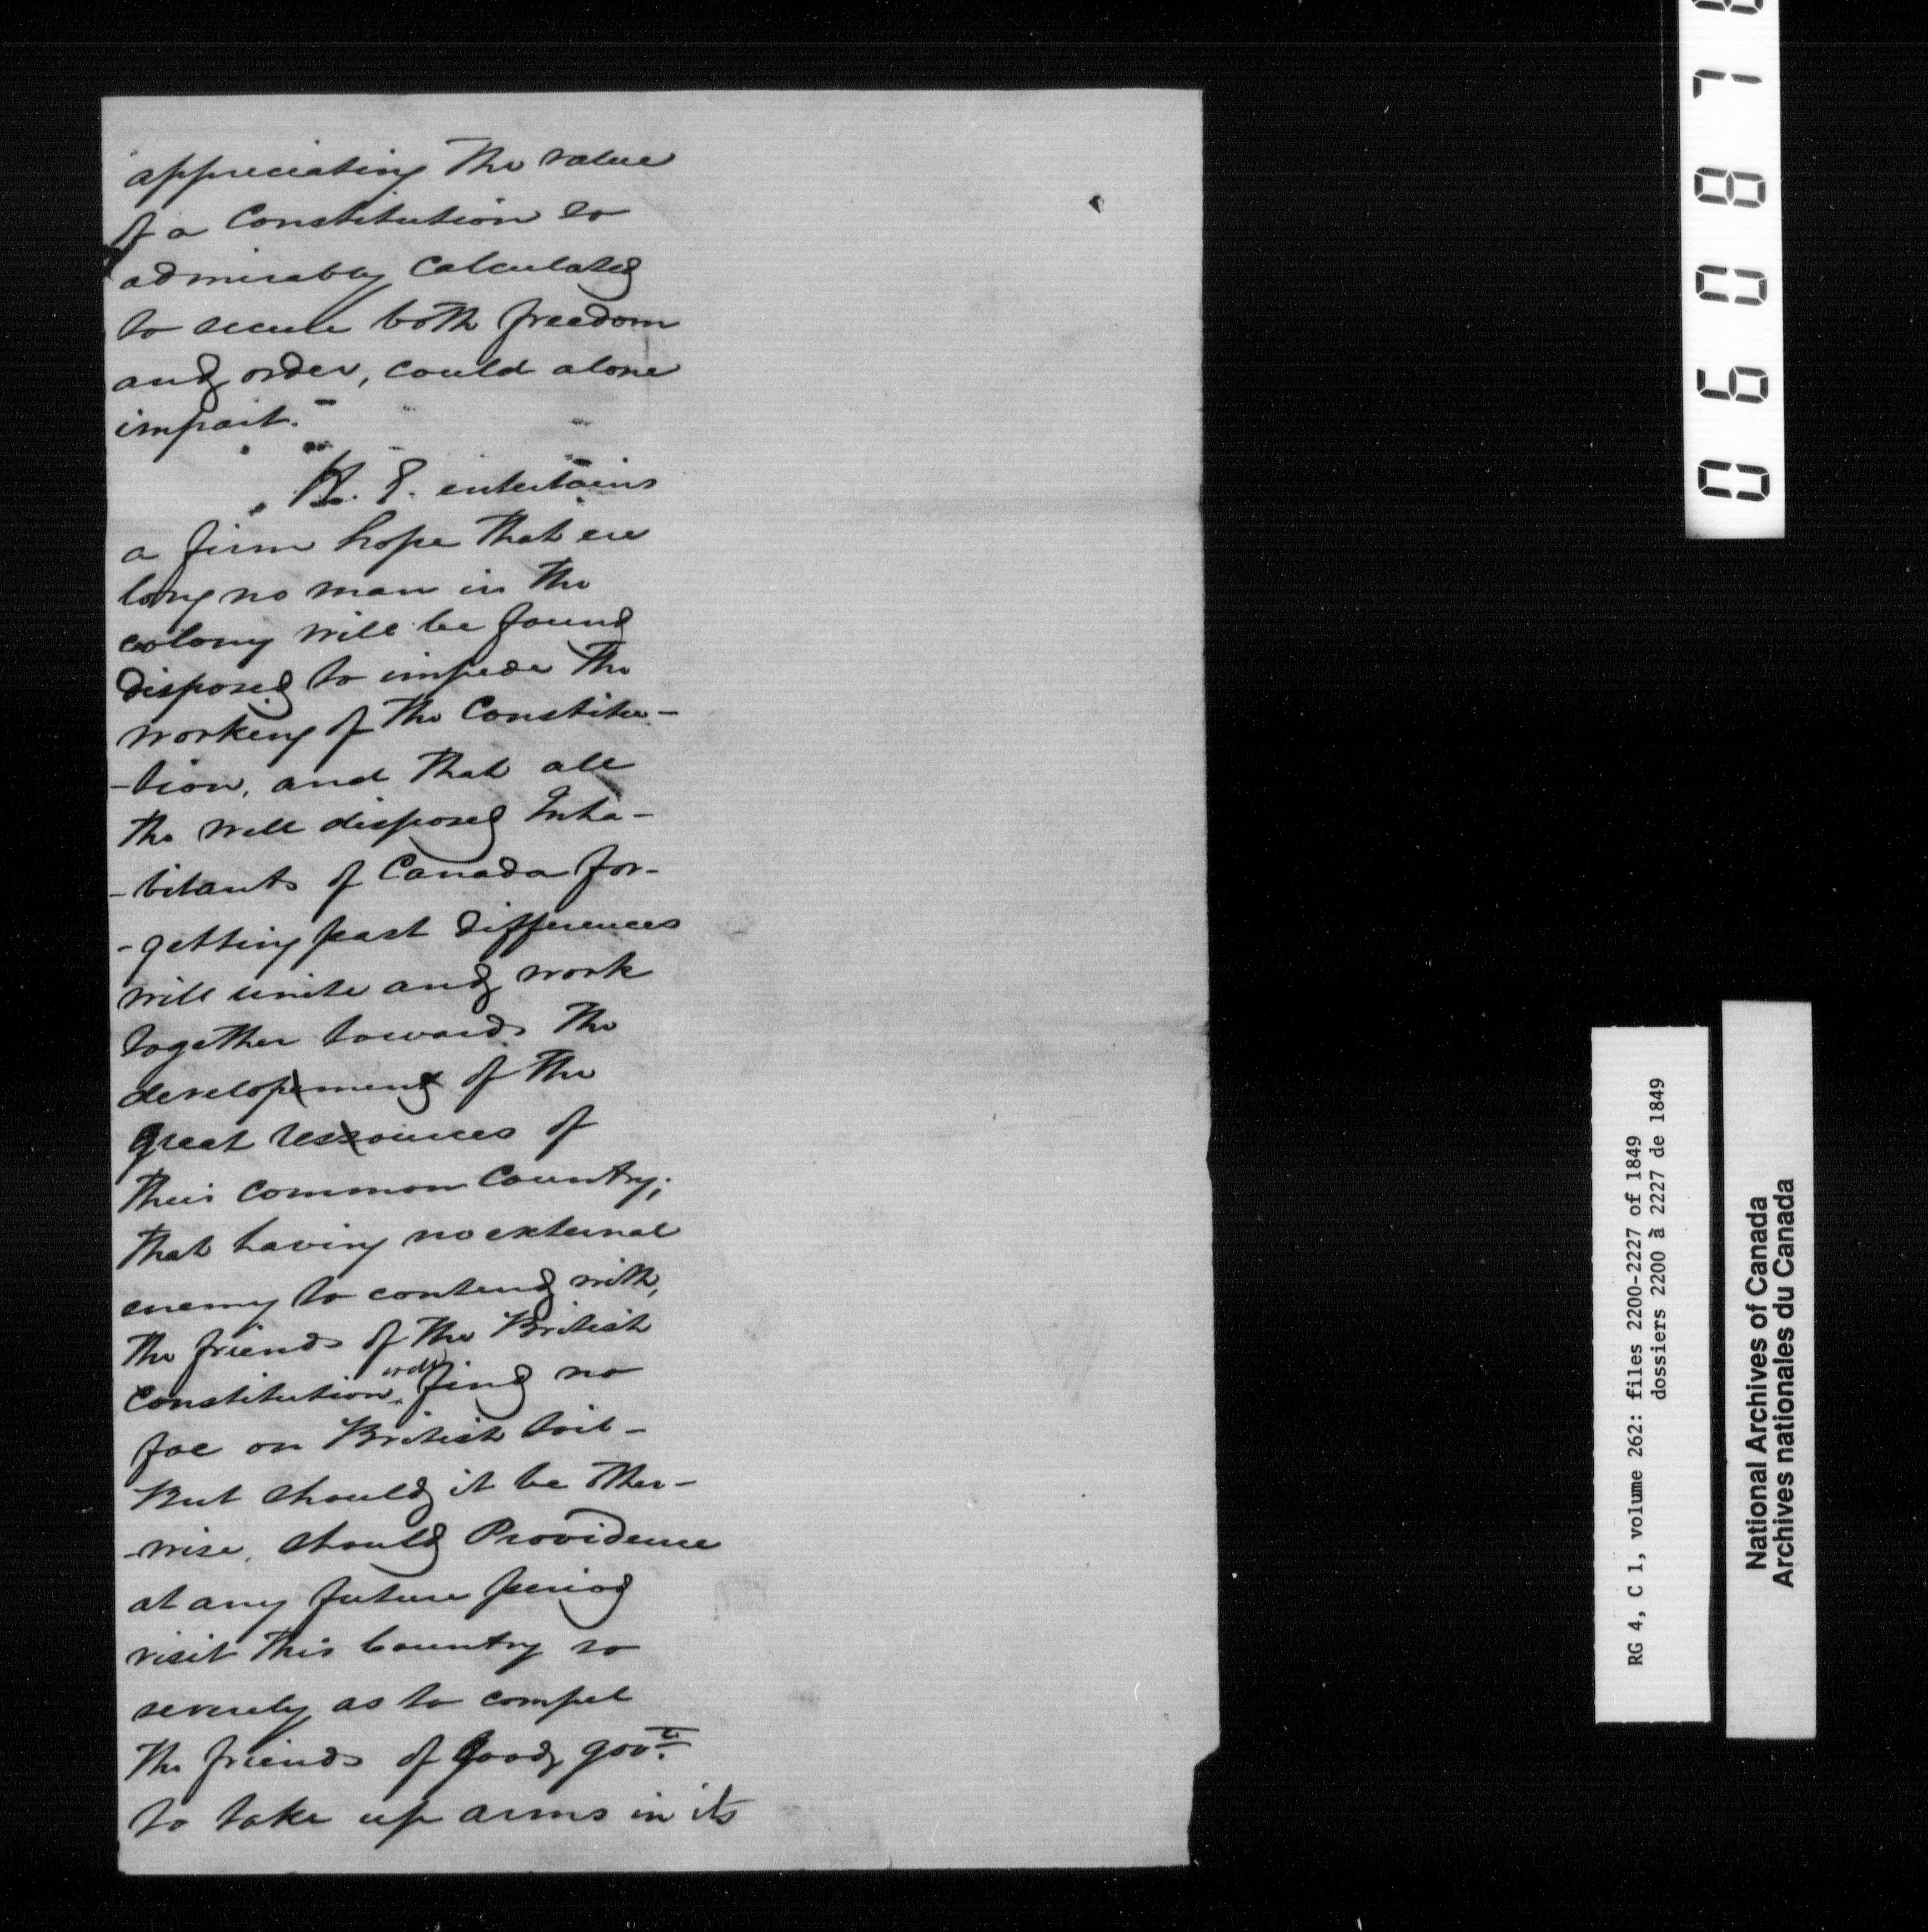 appreciating the value
of a Constitution so
admirably Calculated
to secure both freedom
and order, could alone
impart.
H. E. entertains
a firm hope that ere
long no man in the
colony will be found
disposed to impede the
working of the Constitu-
-tion, and that all
the well disposed Inha-
-bitants of Canada for-
-getting past differences
will unite and work
together towards the
development of the
great resources of
their common Country;
that having no external
enemy to contend with,
the friends of the British
Constitution will find no
foe on British soil-
But should it be other-
-wise, should Providence
at any future period
visit this Country so
severely as to compel
the friends of good govt.
to take up arms in its
060878
RG 4, C 1, volume 262: files 2200-2227 of 1849
dossiers 2200 à 2227 de 1849
National Archives of Canada
Archives nationales du Canada